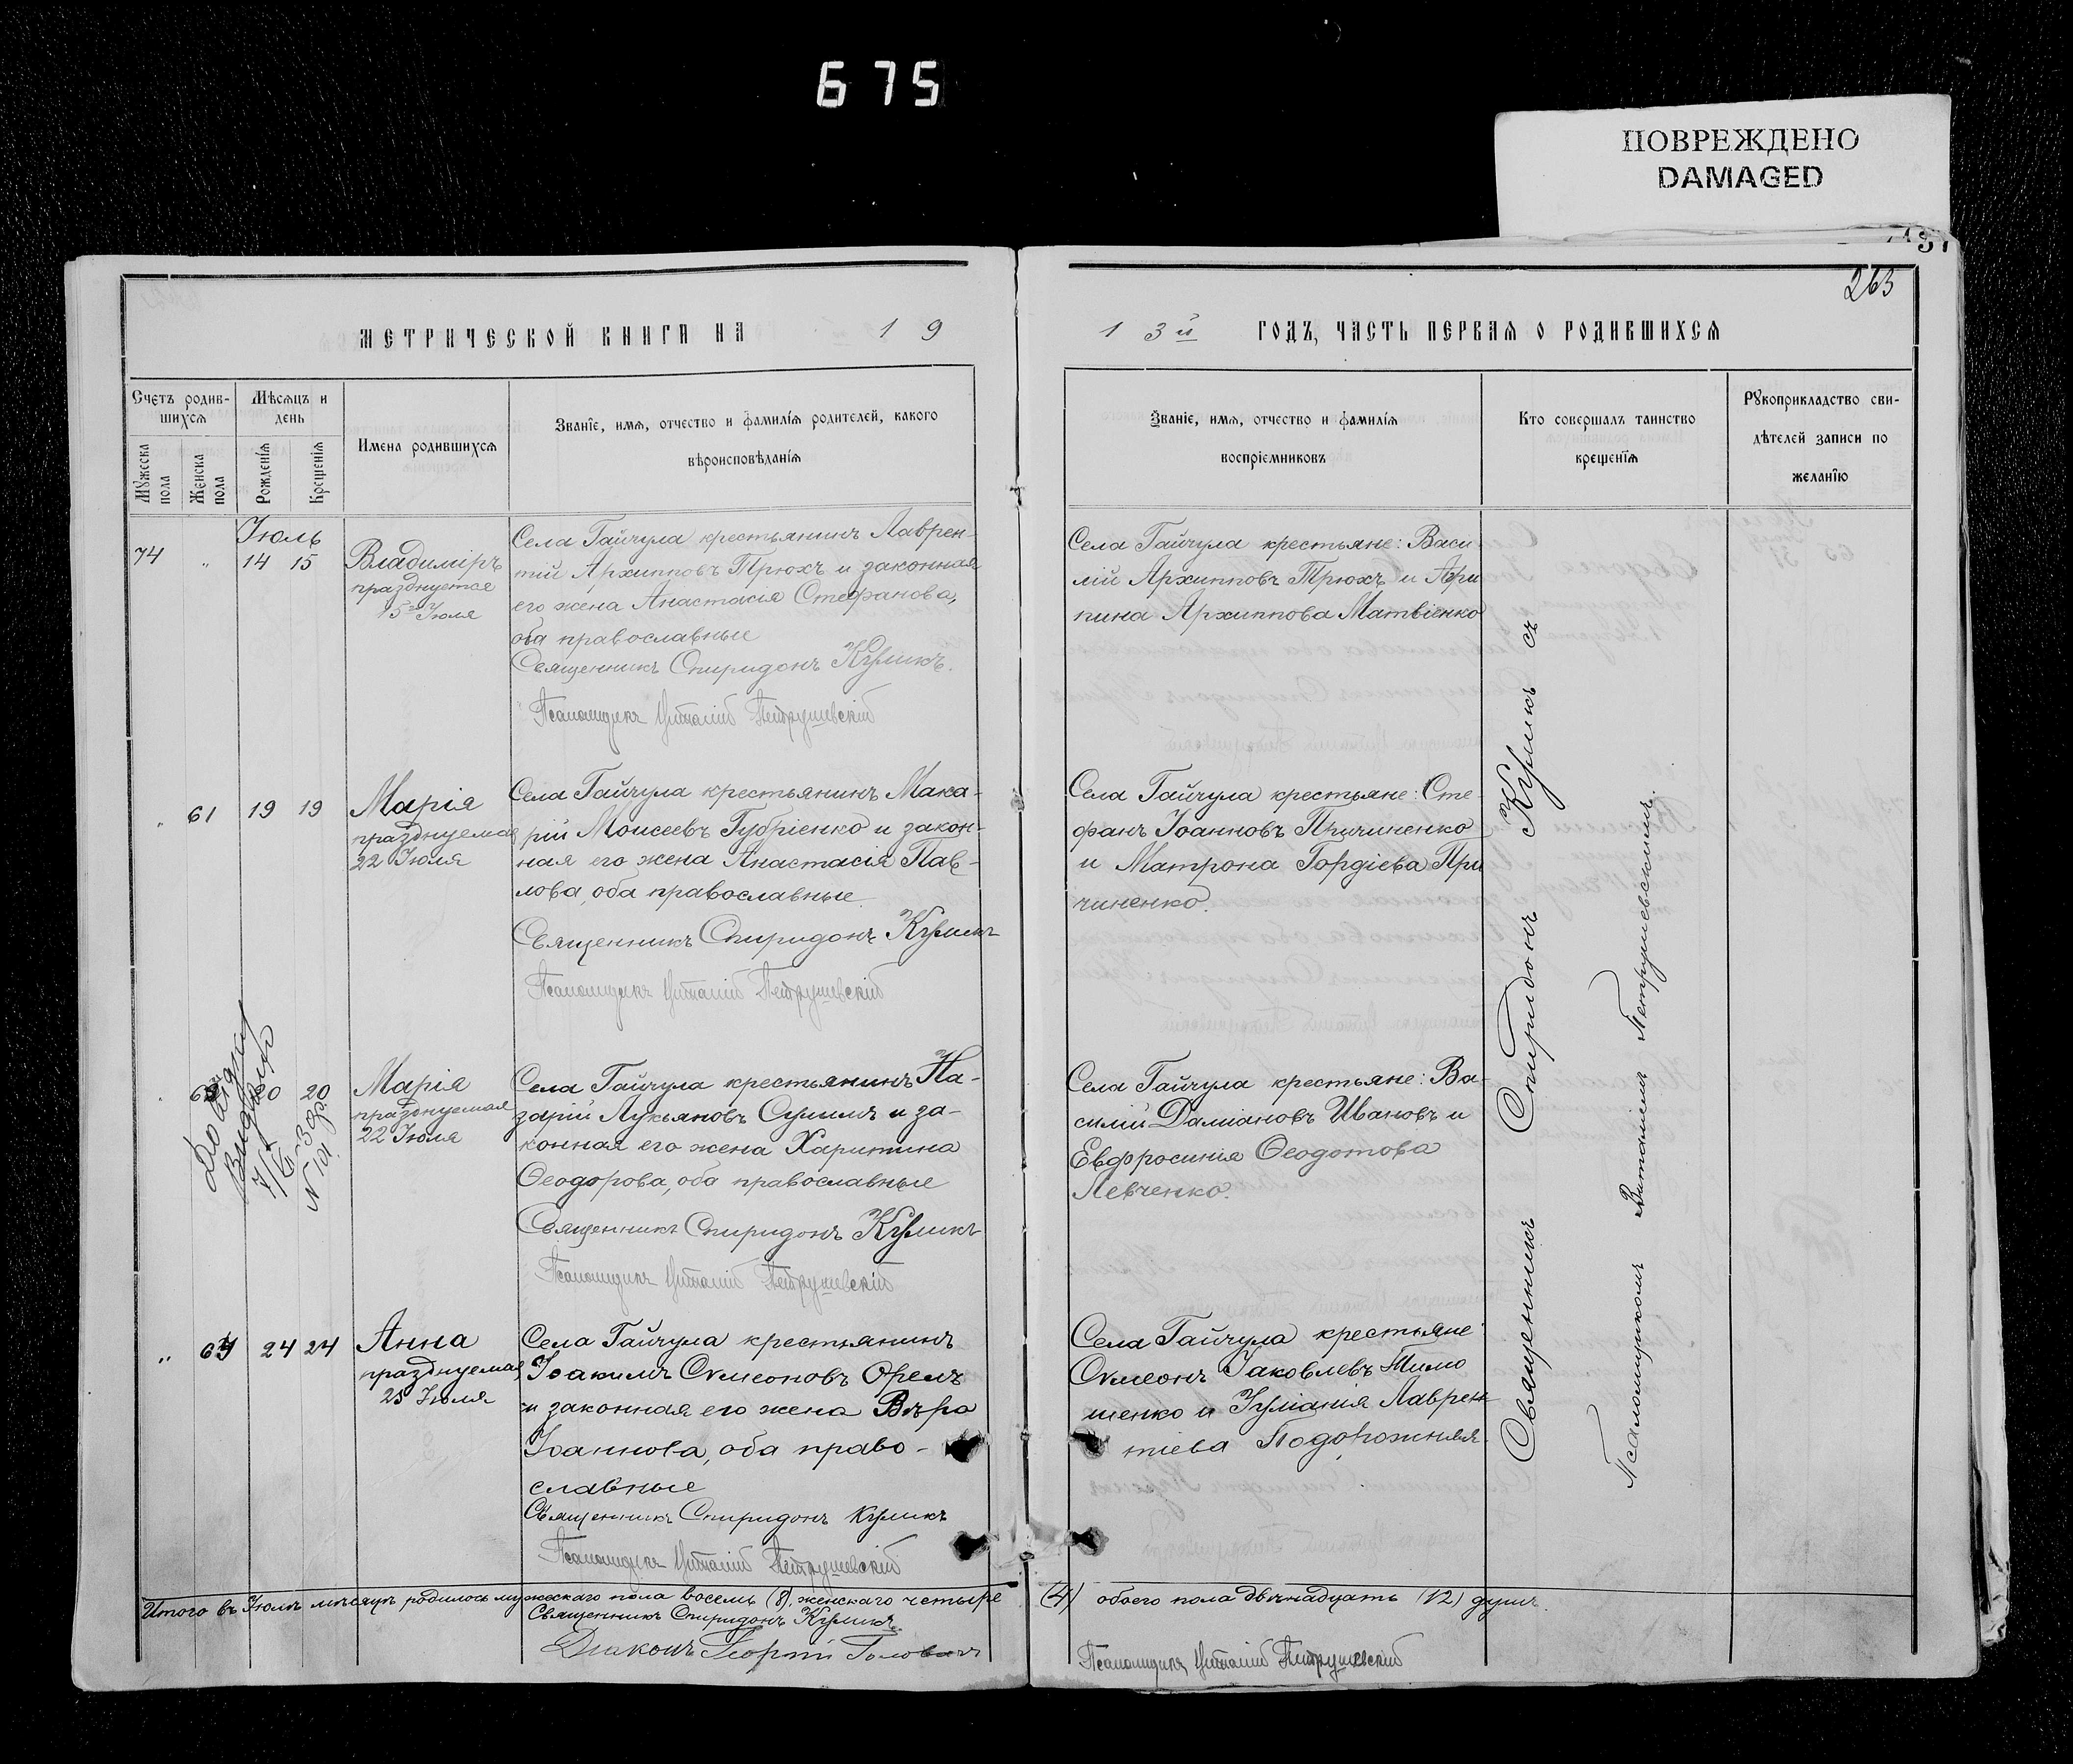 675
ПОВРЕЖДЕНО
DAMAGED
263
МЕТРИЧЕСКОЙ КНИГИ НА 19
13й ГОДЪ, ЧАСТЬ ПЕРВАЯ О РОДИВШИХСЯ
Счетъ родив-
шихся
Мужеска
пола
Женска
пола
Мѣсяцъ и
день
Рожденія
Крещенія
Имена родившихся
Званіе, имя, отчество и фамилія родителей, какого
вѣроисповѣданія
Званіе, имя, отчество и фамилія
воспріемниковъ
Кто совершалъ таинство
крещенія
Рукоприкладство сви-
дѣтелей записи по
желанію
Іюль
74 " 14 15
Владиміръ
празднуется
15го Іюля
Села Гайчула крестьянинъ Лаврен-
тій Архипповъ Трюхъ и законная
его жена Анастасія Стефанова,
оба православные
Священникъ Спиридонъ Куликъ.
Псаломщикъ Виталій Петрушевскій
Села Гайчула крестьяне: Васи
лій Архипповъ Трюхъ и Агри
пина Архиппова Матвіенко
" 61 19 19
Марія
празднуемая
22 Іюля
Села Гайчула крестьянинъ Мака-
рій Моисеевъ Губріенко и закон-
ная его жена Анастасія Пав-
лова, оба православные
Священникъ Спиридонъ Куликъ
Псаломщикъ Виталій Петрушевскій
Села Гайчула крестьяне: Сте-
фанъ Іоанновъ Причиненко
и Матрона Гордіева При
чиненко.
62 20 20
Марія
празднуемая
22 Іюля
Села Гайчула крестьянинъ На-
зарій Лукьяновъ Сулима и за-
конная его жена Харитина
Ѳеодорова, оба православные
Священникъ Спиридонъ Куликъ
Псаломщикъ Виталій Петрушевскій
Села Гайчула крестьяне: Ва-
силій Даміановъ Ивановъ и
Евфросинія Ѳеодотова
Левченко.
" 24 24
Анна
празднуемая
25 Іюля
Села Гайчула крестьянинъ
Іоакимъ Сѵмеоновъ Орелъ
и законная его жена Вѣра
Іоаннова, оба право-
славные
Священникъ Спиридонъ Куликъ
Псаломщикъ Виталій Петрушевскій
Села Гайчула крестьяне
Сѵмеонъ Іаковлевъ Тимо
шенко и Іуліанія Лаврен-
тіева Подорожняя
Священникъ Спиридонъ Куликъ съ
Псаломщикомъ Виталіемъ Петрушевскимъ.
Итого въ Іюлѣ мѣсяцѣ родилось мужескаго пола восемь (8), женскаго четыре (4) обоего пола двѣнадцать (12) душъ.
Священникъ Спиридонъ Куликъ.
Діаконъ Георгій
Псаломщикъ Виталій Петрушевскій